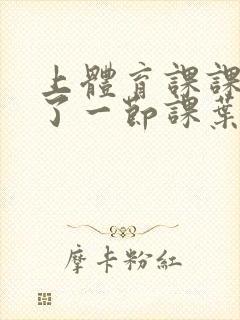 上體育課課
了一節課葉
摩卡粉紅